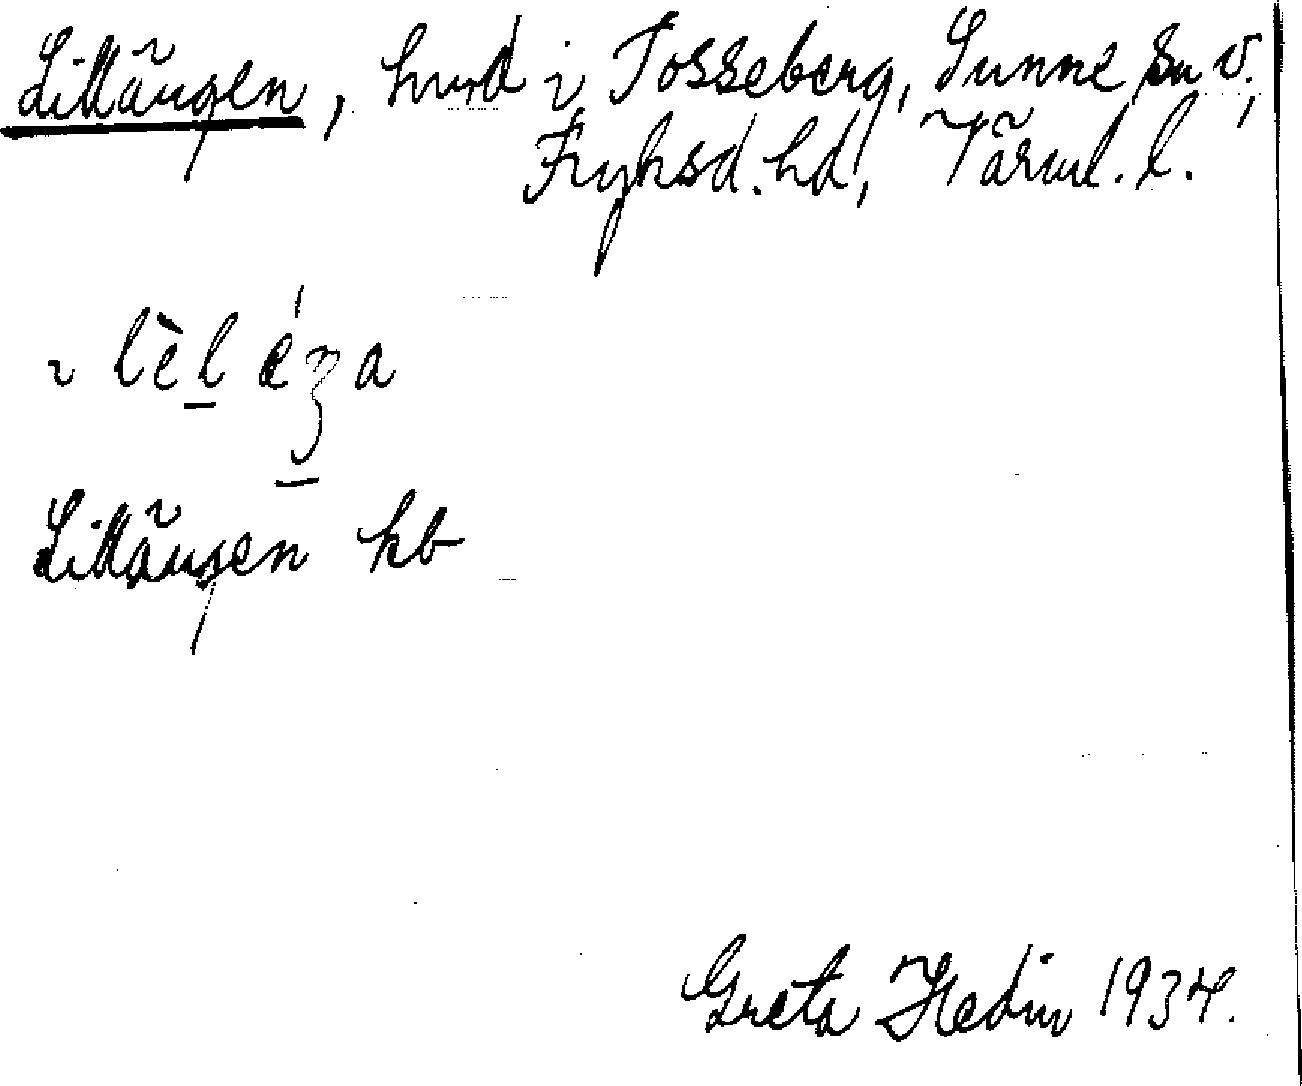 Lillängen, hmd i Tosseberg, Sunne sn V.,
Fryksd. hd, Värml. l.
i lèl éŋa
Lillängen kb
Greta Hedin 1934.